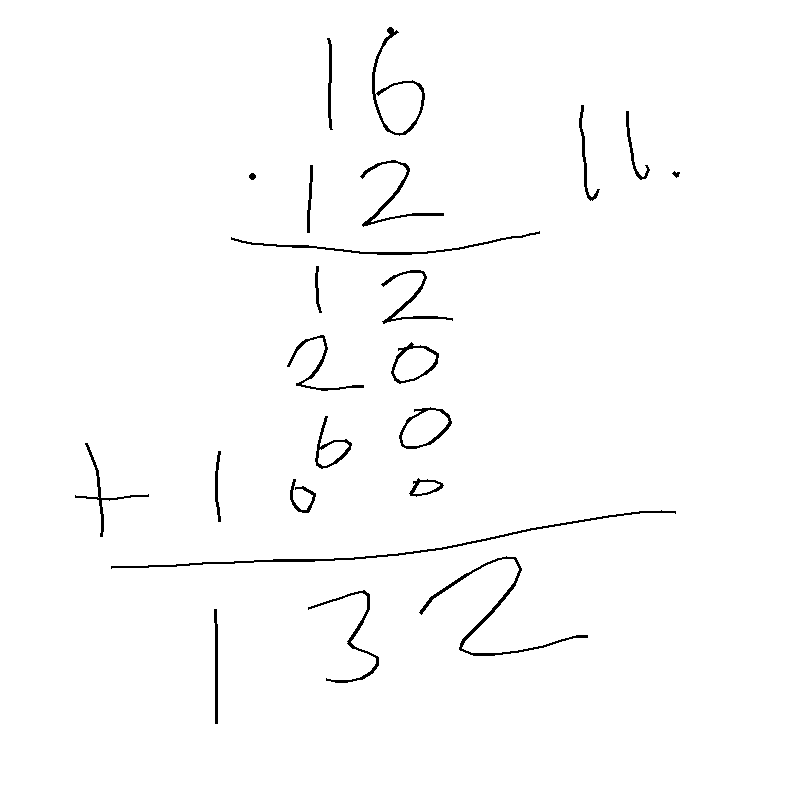 16
11.
· 12
12
20
60
+ 100
132